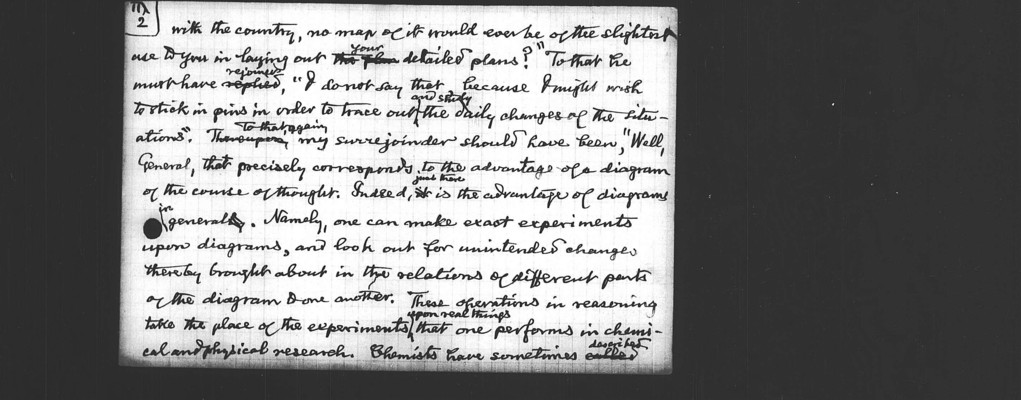 2
with the country, no map of it would ever be of the slightest
use to you in laying out your detailed plans?" To that he
must have rejoined replied, "I do not say that because I might wish
to stick in pins in order to trace out and study the daily changes of the situ-
ations". To that, again Thereupon, my surrejoinder should have been, "Well,
General, that precisely corresponds to the advantage of a diagram
of the course of thought. Indeed, just there is the advantage of diagrams
in general. Namely, one can make exact experiments
upon diagrams, and look out for unintended changes
thereby brought about in the relations of different parts
of the diagram to one another. These operations in reasoning
take the place of the experiments upon real things that one performs in chemi-
cal and physical research. Chemists have sometimes described called